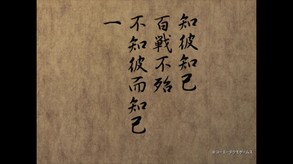 知彼知己
百戦不殆
不知彼而知己
一